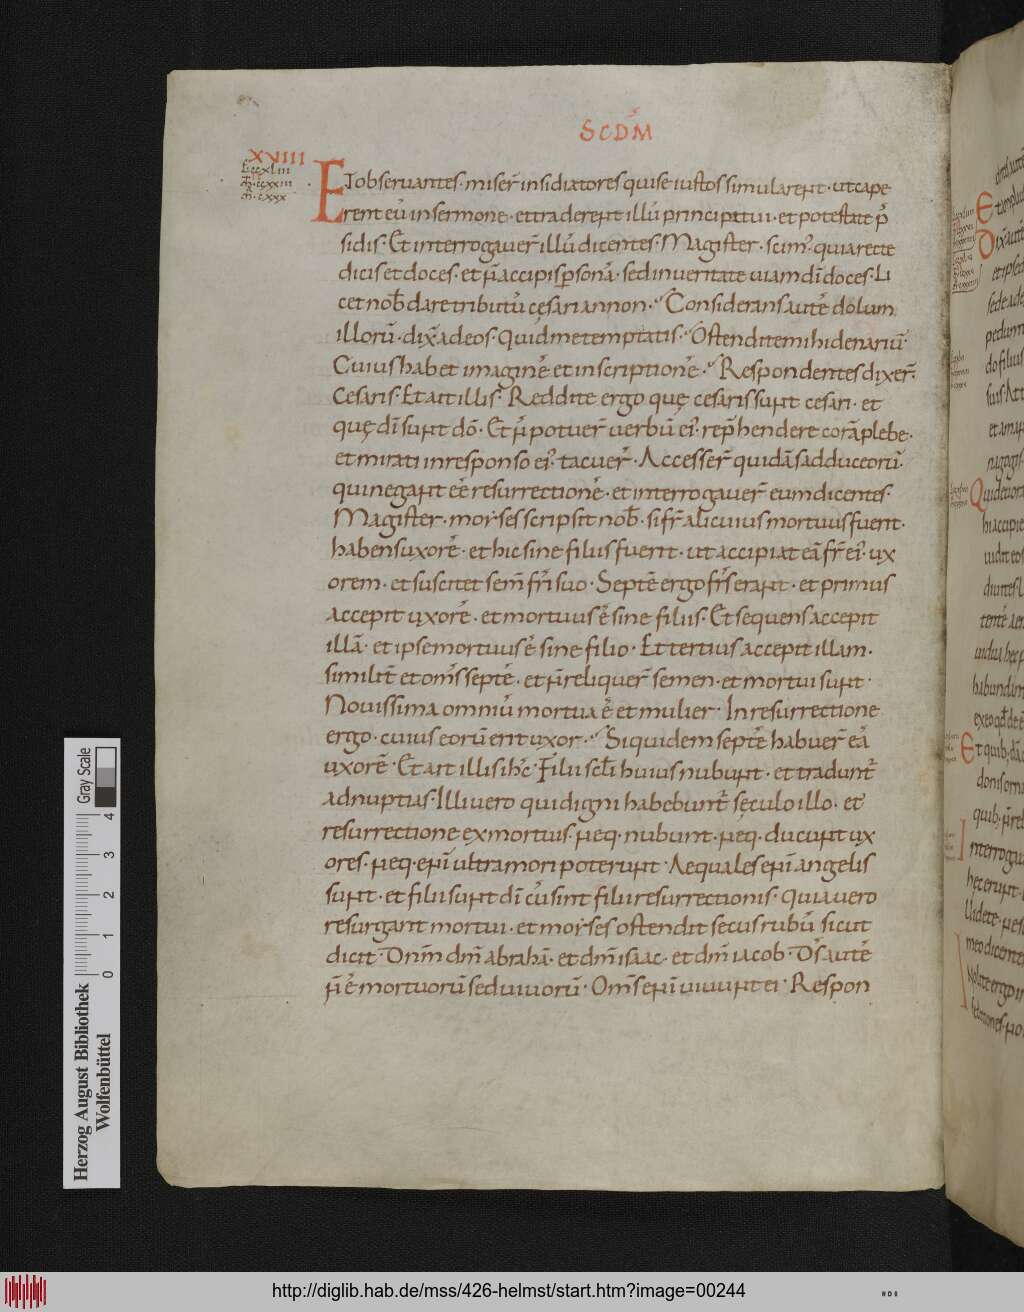 SCDM̄
XVIII
ccxliii
ccxxiii
cxxx
Et observantes · miser̄ insidiatores qui se iustos simularent · ut cape
rent eū in sermone · et traderent illū principatui · et potestati p̄
sidis · Et interrogaver̄ illū dicentes · Magister · scim᾿ · quia recte
dicis et doces · et n̄ accipis ꝑsonā · sed in veritate viam dī doces · Li
cet nob̄ dare tributū cęsari an non · Considerans autē dolum
illorū · dix̄ ad eos · Quid me temptatis · Ostendite mihi denariū ·
Cuius habet imaginē et inscriptionē · Respondentes dixer̄ ·
Cesaris · Et ait illis · Reddite ergo quę cesaris sunt cesari · et
quę dī sunt dō · Et n̄ potuer̄ verbū ei᾿ · rep̄hendere corā plebe ·
et mirati in responso ei᾿ · tacuer̄ · Accesser̄ quidā sadduceorū ·
qui negant eē resurrectionē · et interrogaver̄ eum dicentes ·
Magister · moyses scripsit nob̄ · si fr̄ alicuius mortuus fuerit ·
habens uxorē · et hic sine filiis fuerit · ut accipiat eā fr̄ ei᾿ · ux
orem · et suscitet sem̄ fr̄i suo · Septē ergo fr̄s erant · et primus
accepit uxorē · et mortuus ē sine filiis · Et sequens accepit
illā · et ipse mortuus ē sine filio · Et tertius accepit illam ·
similit̄ et om̄s septē · et n̄ reliquer̄ semen · et mortui sunt ·
Novissima omniū mortua ē et mulier · In resurrectione
ergo · cuius eorū erit uxor · Siquidem septē habuer̄ eā
uxorē · Et ait illis ih̄c · Filii scl̄i huius nubunt · et tradunt̄
ad nuptias · Illi vero qui digni habebunt̄ sęculo illo · et
resurrectione ex mortuis · neq · nubunt · neq · ducunt ux
ores · neq · enī ultra mori poterunt · Aequales enī angelis
sunt · et filii sunt dī cū sint filii resurrectionis · Quia vero
resurgant mortui · et moyses ostendit secus rubū sicut
dicit · Dn̄m dm̄ abrahā · et dm̄ isaac · et dm̄ iacob · Ds̄ autē
n̄ ē mortuorū sed vivorū · Om̄s enī vivunt ei · Respon
Gray Scale
0 1 2 3 4
Herzog August Bibliothek
Wolfenbüttel
http://diglib.hab.de/mss/426-helmst/start.htm?image=00244